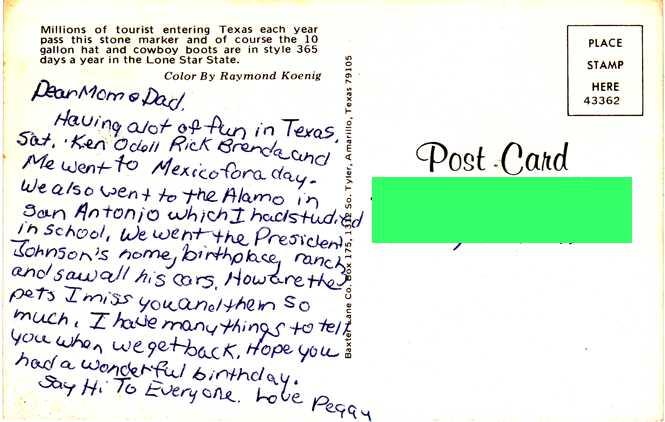 Millions of tourist entering Texas each year
pass this stone marker and of course the 10
gallon hat and cowboy boots are in style 365
days a year in the Lone Star State.
Color By Raymond Koenig
Dear Mom & Dad,
Having a lot of fun in Texas.
Sat. Ken Odell Rick Brenda and
Me went to Mexico for a day.
We also went to the Alamo in
San Antonio which I had studied
in school. We went the President
Johnson's home, birthplace, ranch
and saw all his cars. How are the
pets I miss you and them so
much. I have many things to tell
you when we get back. Hope you
had a wonderful birthday.
Say Hi To Everyone. Love Peggy
Baxter Lane Co. Box 175, 1312 So. Tyler, Amarillo, Texas 79105
Post Card
PLACE
STAMP
HERE
43362